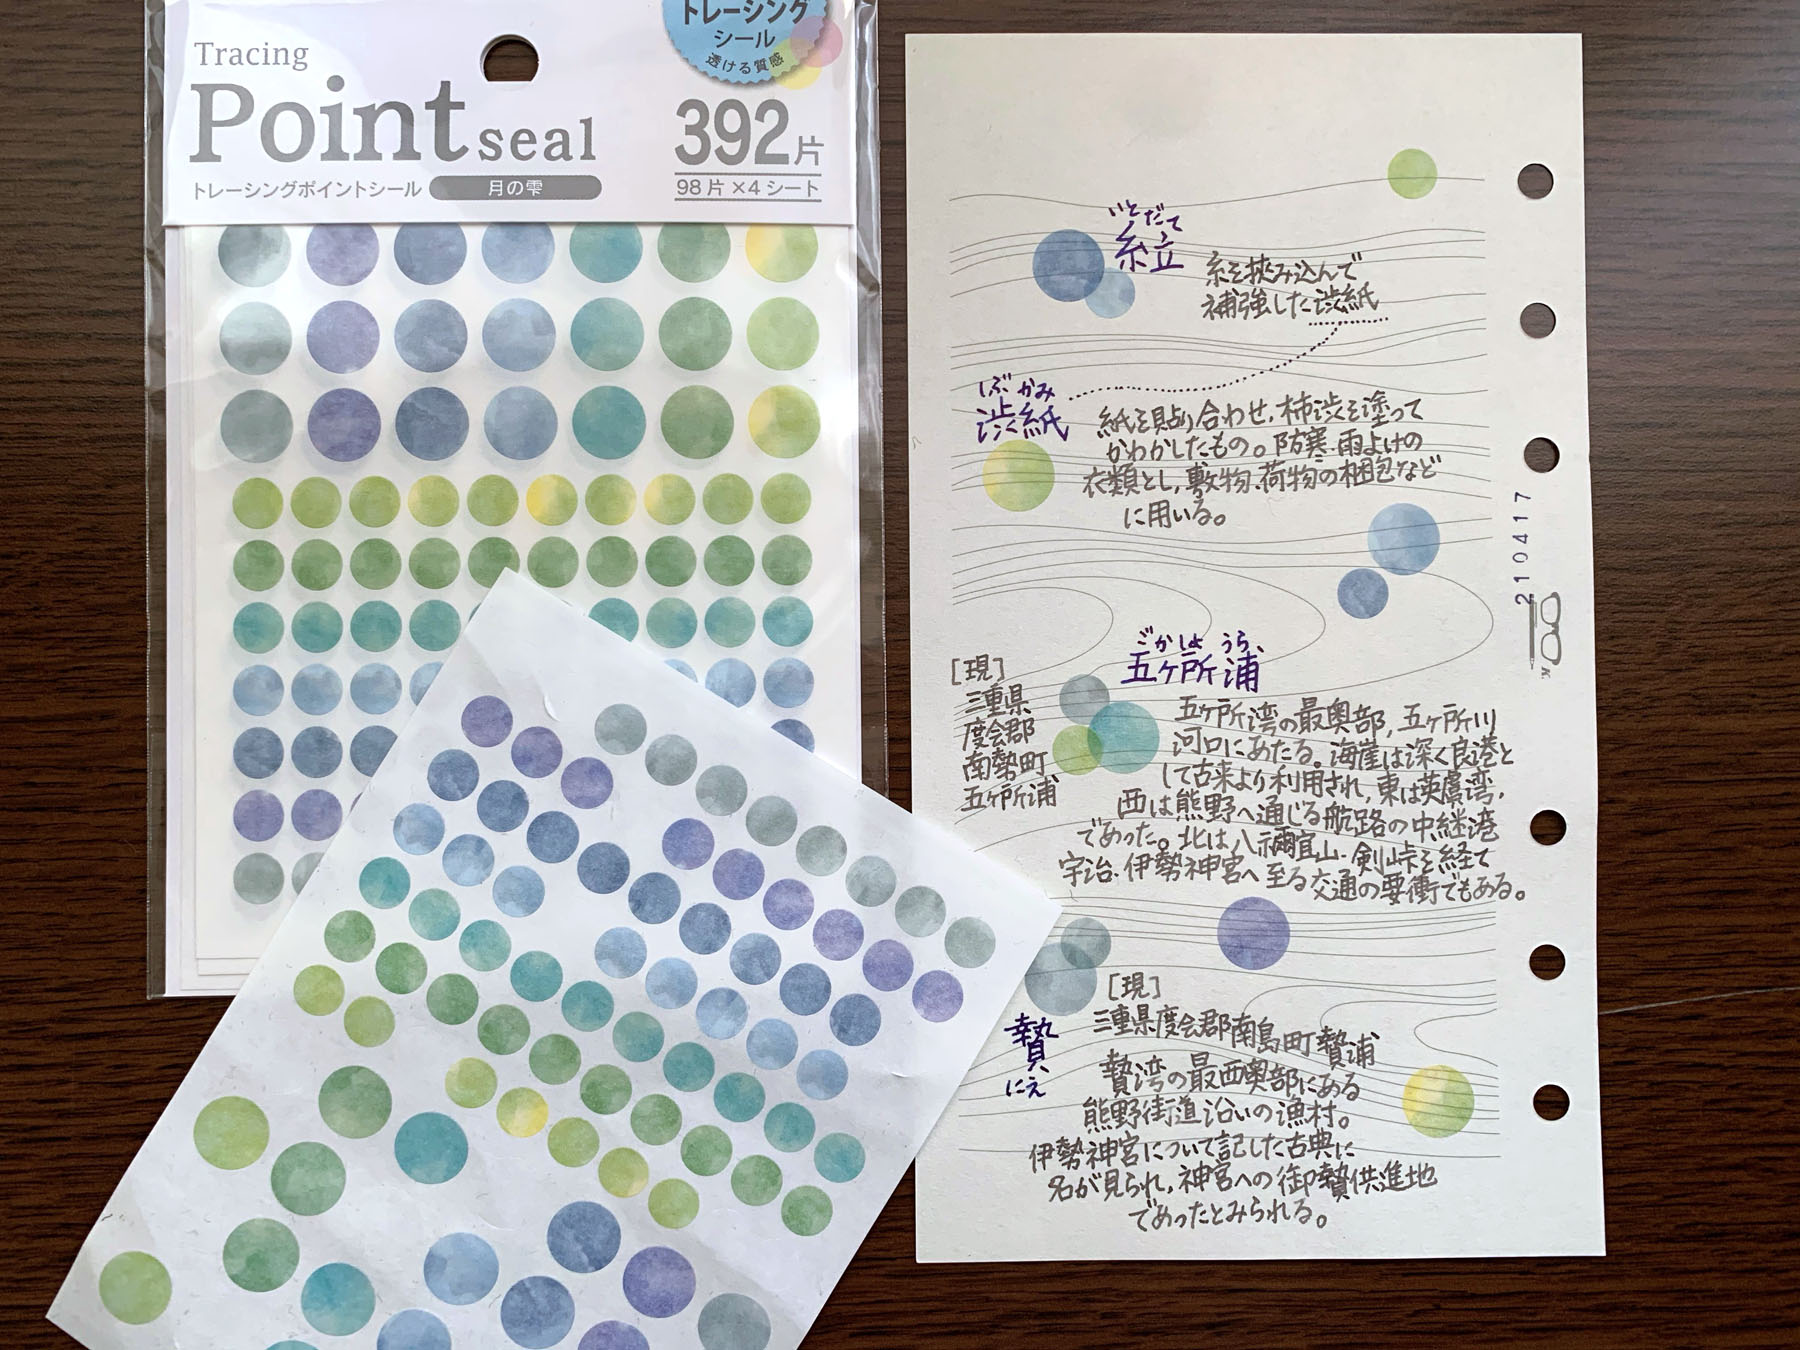 トレーシング
シール
透ける質感
Tracing
Point seal
392片
トレーシングポイントシール
月の雫
98片×4シート
いとだて
糸立
糸を挟み込んで
補強した渋紙
しぶかみ
渋紙
紙を貼り合わせ,柿渋を塗って
かわかしたもの。防寒・雨よけの
衣類とし,敷物、荷物の梱包など
に用いる。
210417
ごかしょうら
五ヶ所浦
[現]
三重県
度会郡
南勢町
五ヶ所浦
五ヶ所湾の最奥部,五ヶ所川
河口にあたる。海崖は深く良港と
して古来より利用され,東は英虞湾,
西は熊野へ通じる航路の中継港
であった。北は八禰宜山・剣峠を経て
宇治・伊勢神宮へ至る交通の要衝でもある。
贄
にえ
[現]
三重県度会郡南島町贄浦
贄湾の最西奥部にある
熊野街道沿いの漁村。
伊勢神宮について記した古典に
名が見られ,神宮への御贄供進地
であったとみられる。